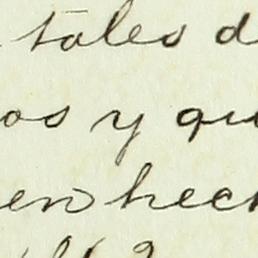 tales d
os y qu
en hech